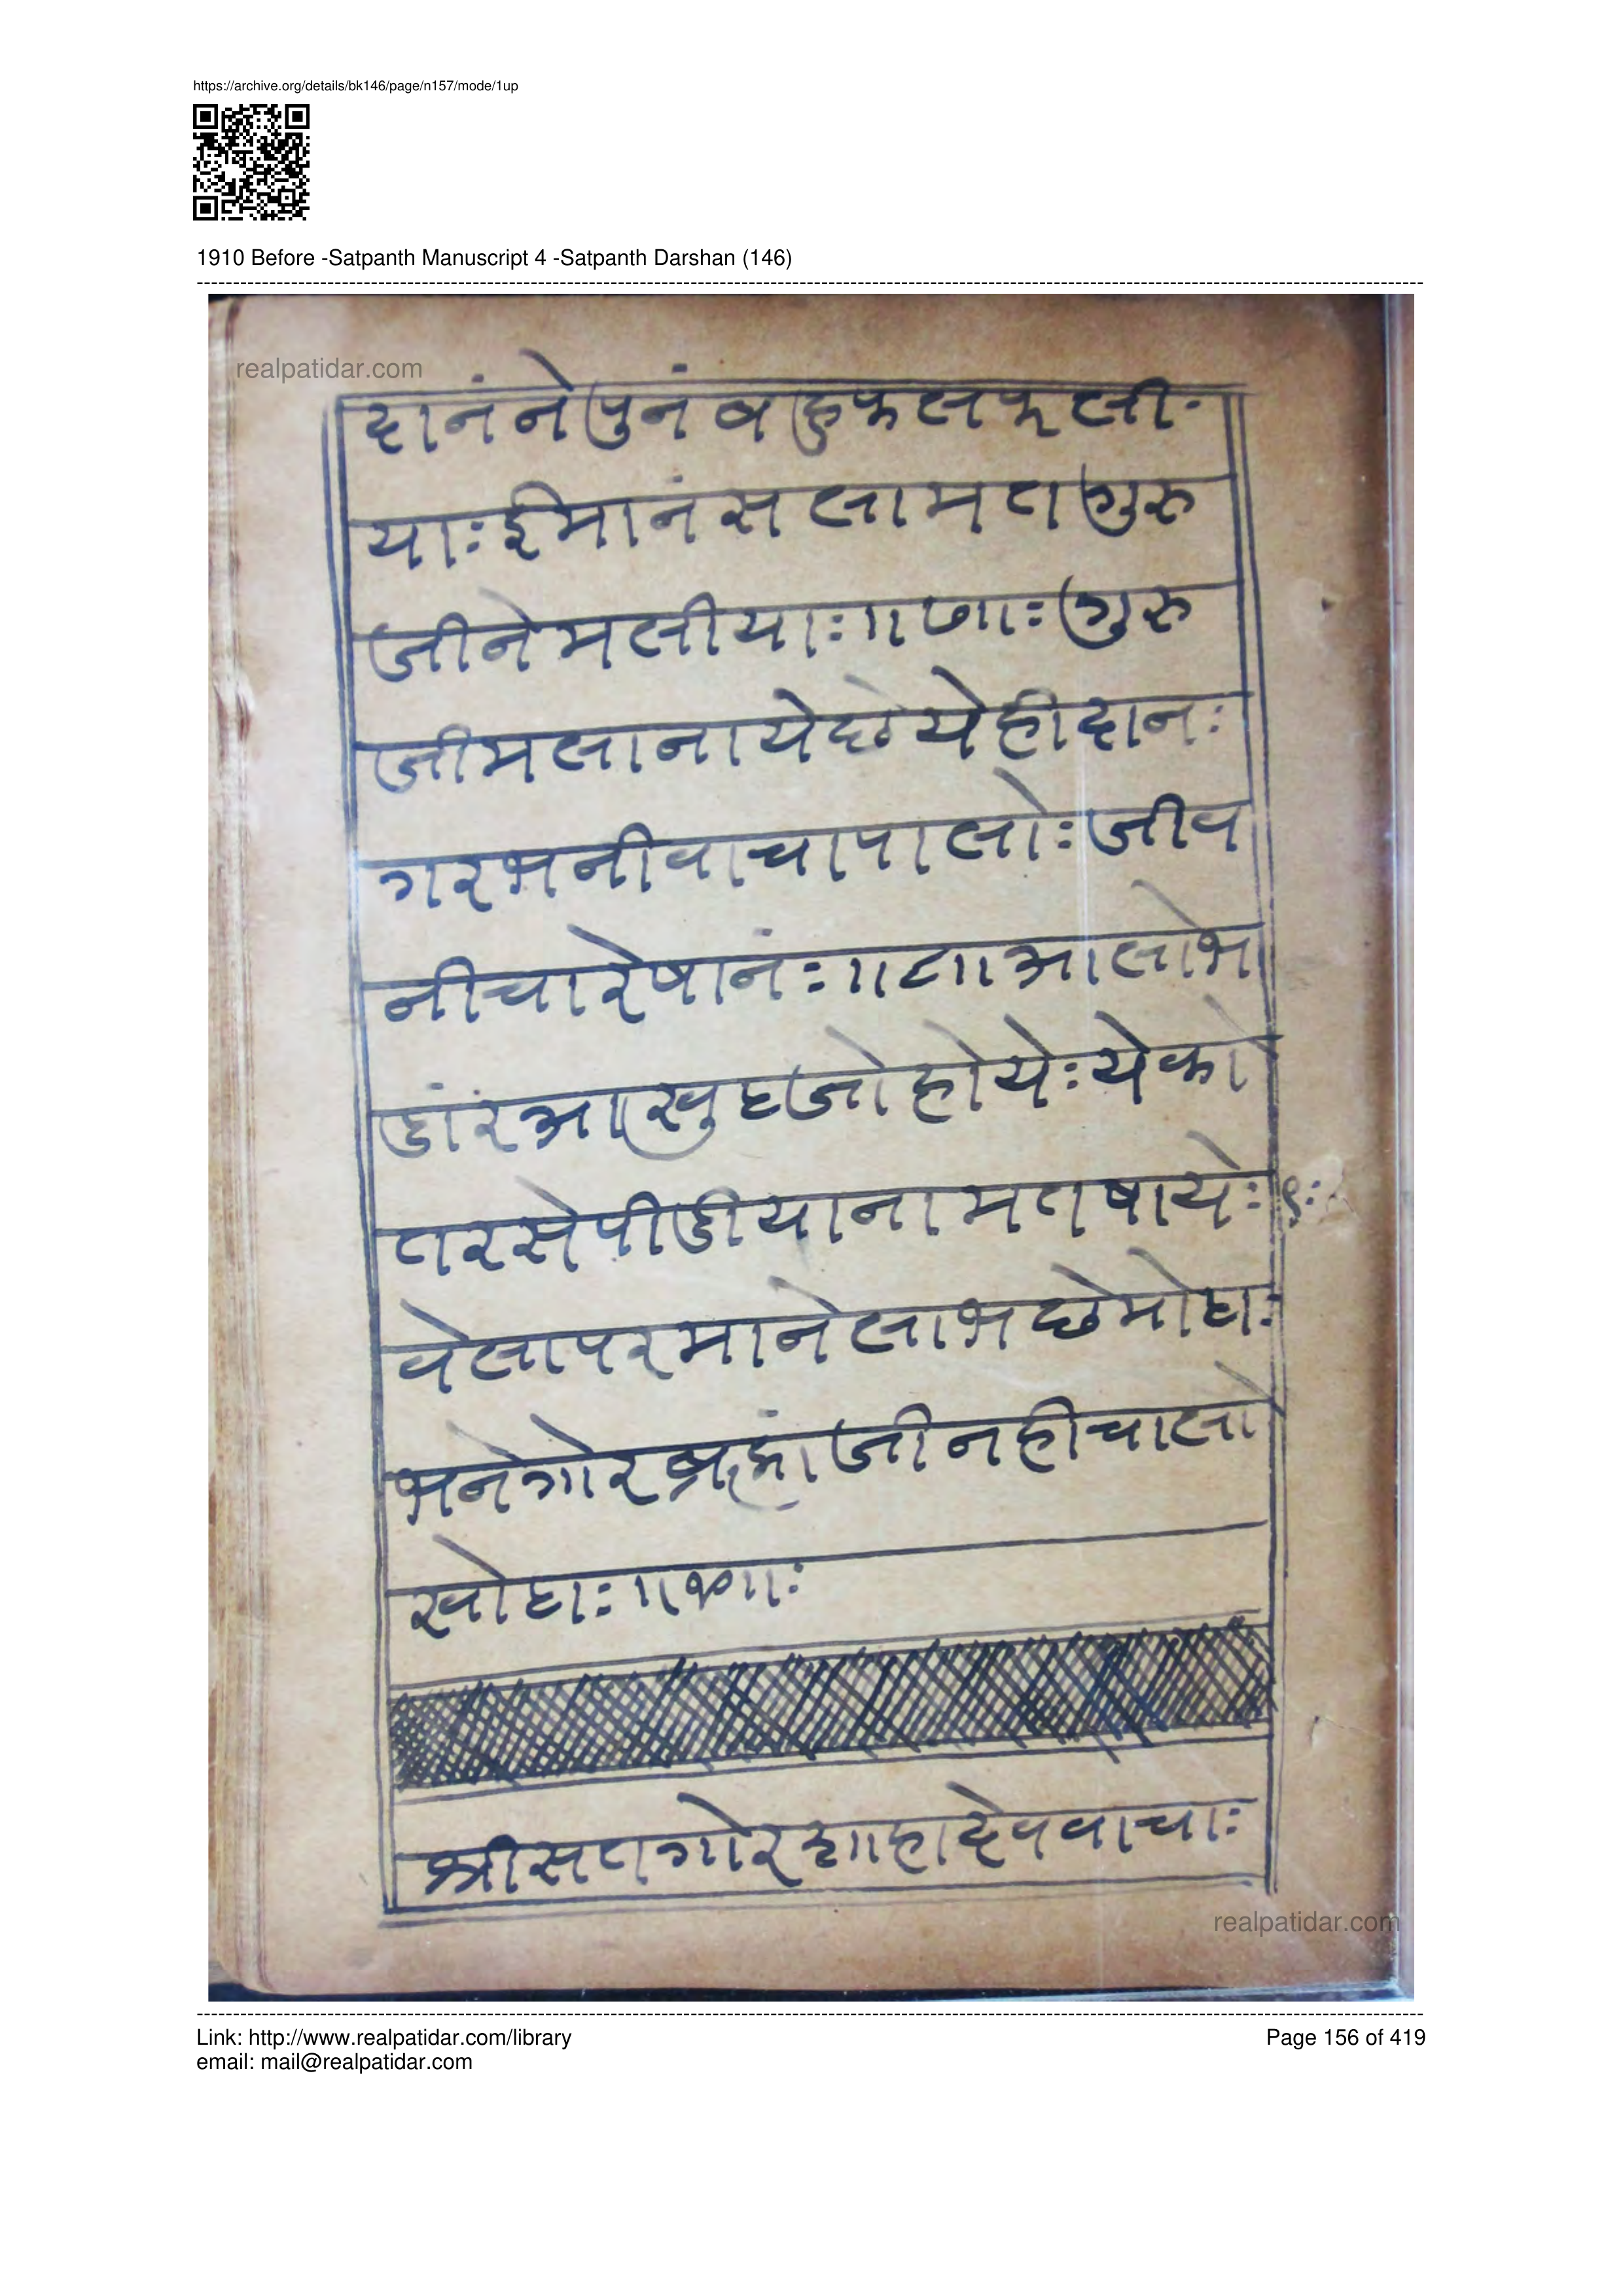 https://archive.org/details/bk146/page/n157/mode/1up
1910 Before -Satpanth Manuscript 4 -Satpanth Darshan (146)
realpatidar.com
दानंने पुनं बहु फल फली-
याः ईमानं सलामत गुरु
जीने मलीयाः ॥७॥ः गुरु
जी मलाना ये छे येही दानः
गरभनी वाचा पालोः जीव
नी चारे षानंः ॥८॥ आलो भ
डांरं आखुट जो होयेः येको
तर से पीडीया नाम त षायेः ९ः
वेला परमाने लाभ छे मोटाः
भने गोर ब्रह्मांजी नही चालो
खोटाः ॥९॥ः
श्री सतगोर शाहादेव वाचाः
realpatidar.com
Link: http://www.realpatidar.com/library
Page 156 of 419
email: mail@realpatidar.com